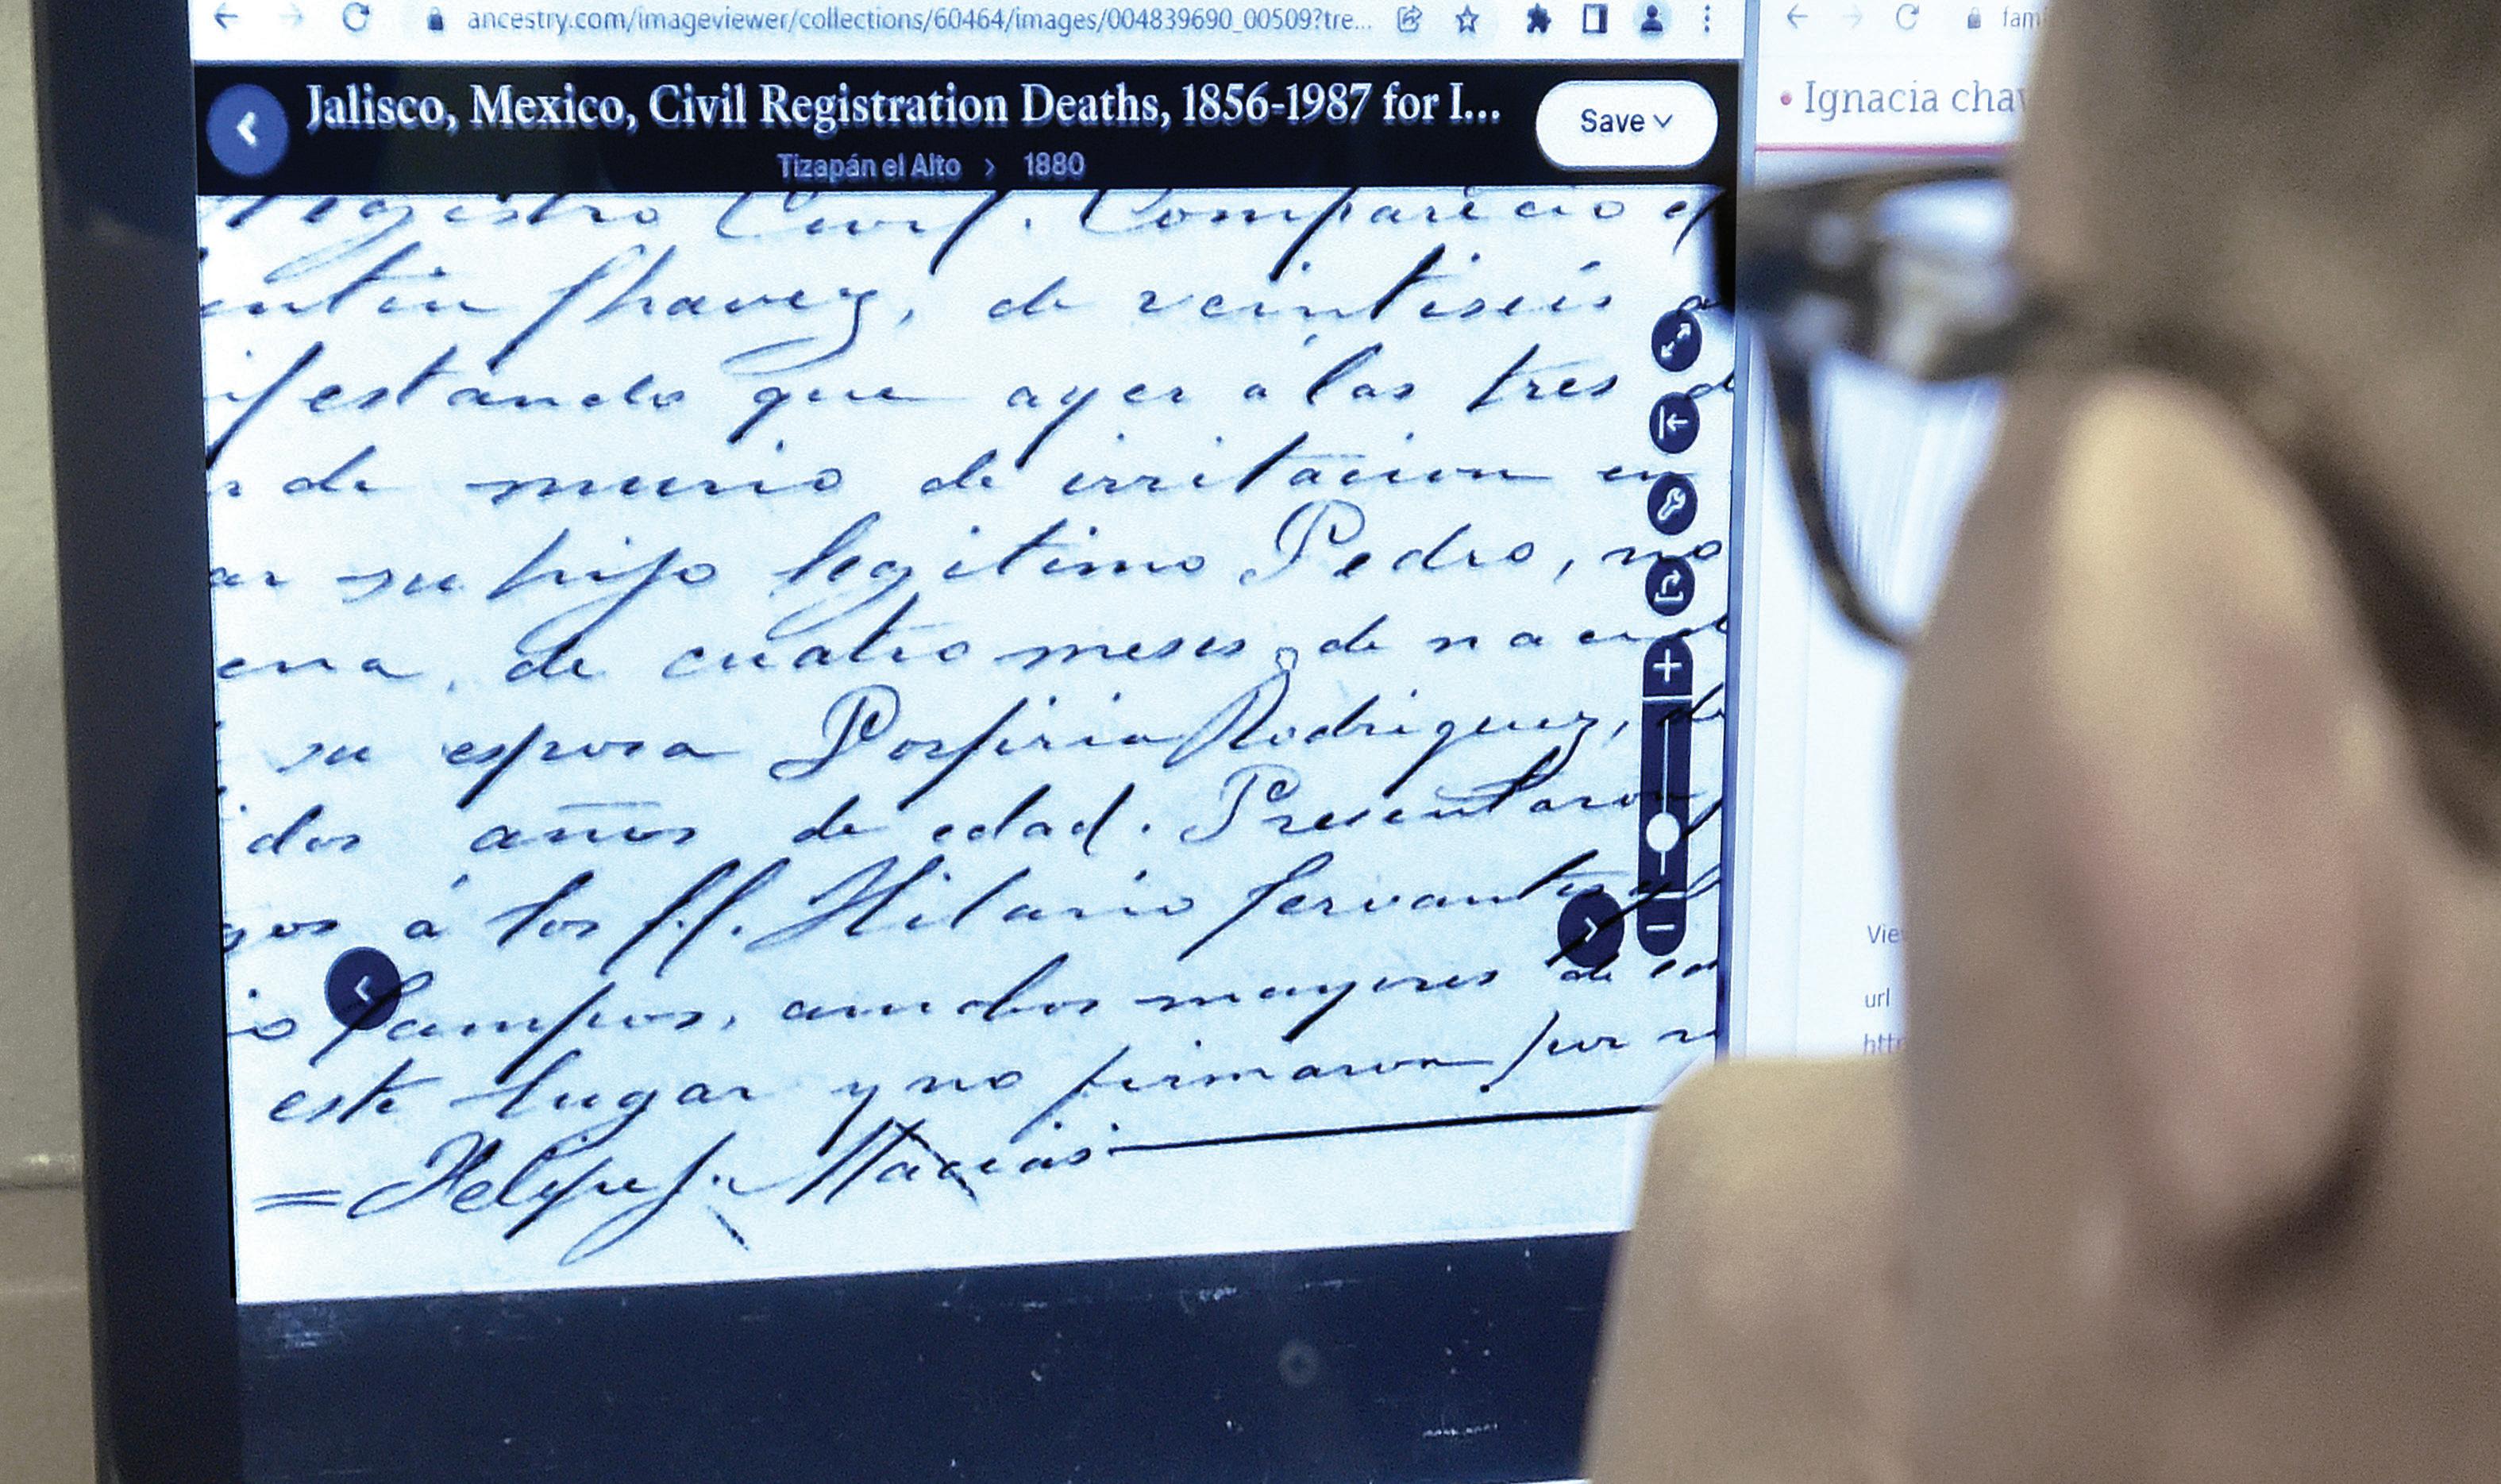 ancestry.com/imageviewer/collections/60464/images/004839690_00509?tre...
Jalisco, Mexico, Civil Registration Deaths, 1856-1987 for I...
Save
Tizapán el Alto > 1880
Registro Civil. Comparecio el
Chavez, de veintiseis
ifestando que ayer á las tres d
de murio de irritacion en
su hijo legitimo Pedro,
ena, de cuatro meses de nacid
su esposa Porfiria Rodriguez, de
idos años de edad. Presentaron
gos á los SS. Hilario Cervantes y
io Campos, ambos mayores de ed
este lugar y no firmaron por
= Felipe J. Macias
fam
Ignacia chav
Vie
url
http